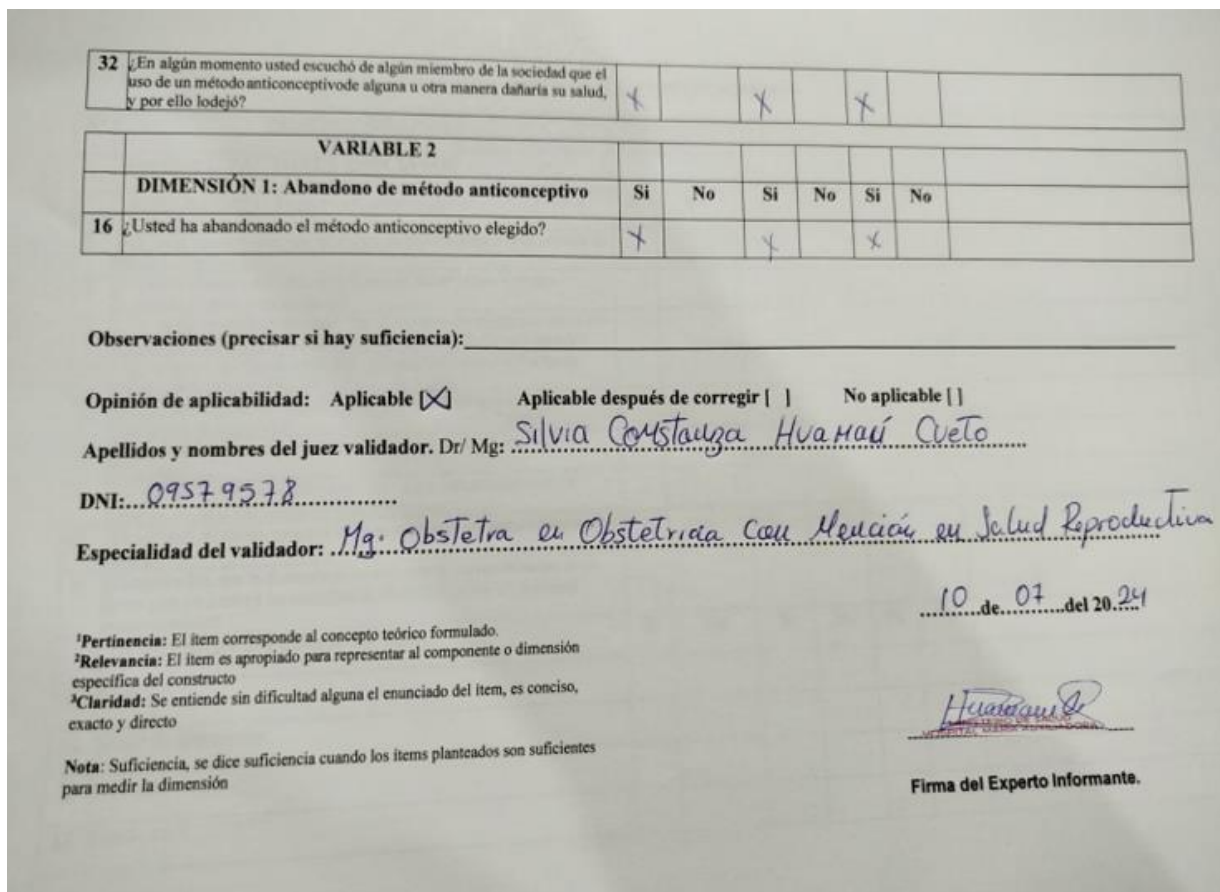 32 ¿En algún momento usted escuchó de algún miembro de la sociedad que el
uso de un método anticonceptivode alguna u otra manera dañaría su salud,
y por ello lodejó? X X X
VARIABLE 2
DIMENSIÓN 1: Abandono de método anticonceptivo Si No Si No Si No
16 ¿Usted ha abandonado el método anticonceptivo elegido? X X X
Observaciones (precisar si hay suficiencia):
Opinión de aplicabilidad: Aplicable [X] Aplicable después de corregir [ ] No aplicable [ ]
Apellidos y nombres del juez validador. Dr/ Mg: Silvia Constanza Huamaní Cueto
DNI: 09579578
Especialidad del validador: Mg. Obstetra en Obstetricia con Mención en Salud Reproductiva
10 de 07 del 2024
¹Pertinencia: El ítem corresponde al concepto teórico formulado.
²Relevancia: El ítem es apropiado para representar al componente o dimensión
específica del constructo
³Claridad: Se entiende sin dificultad alguna el enunciado del ítem, es conciso,
exacto y directo
Nota: Suficiencia, se dice suficiencia cuando los ítems planteados son suficientes
para medir la dimensión
HOSPITAL MARIA AUXILIADORA
Firma del Experto Informante.